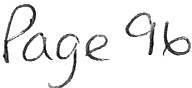 Page 96